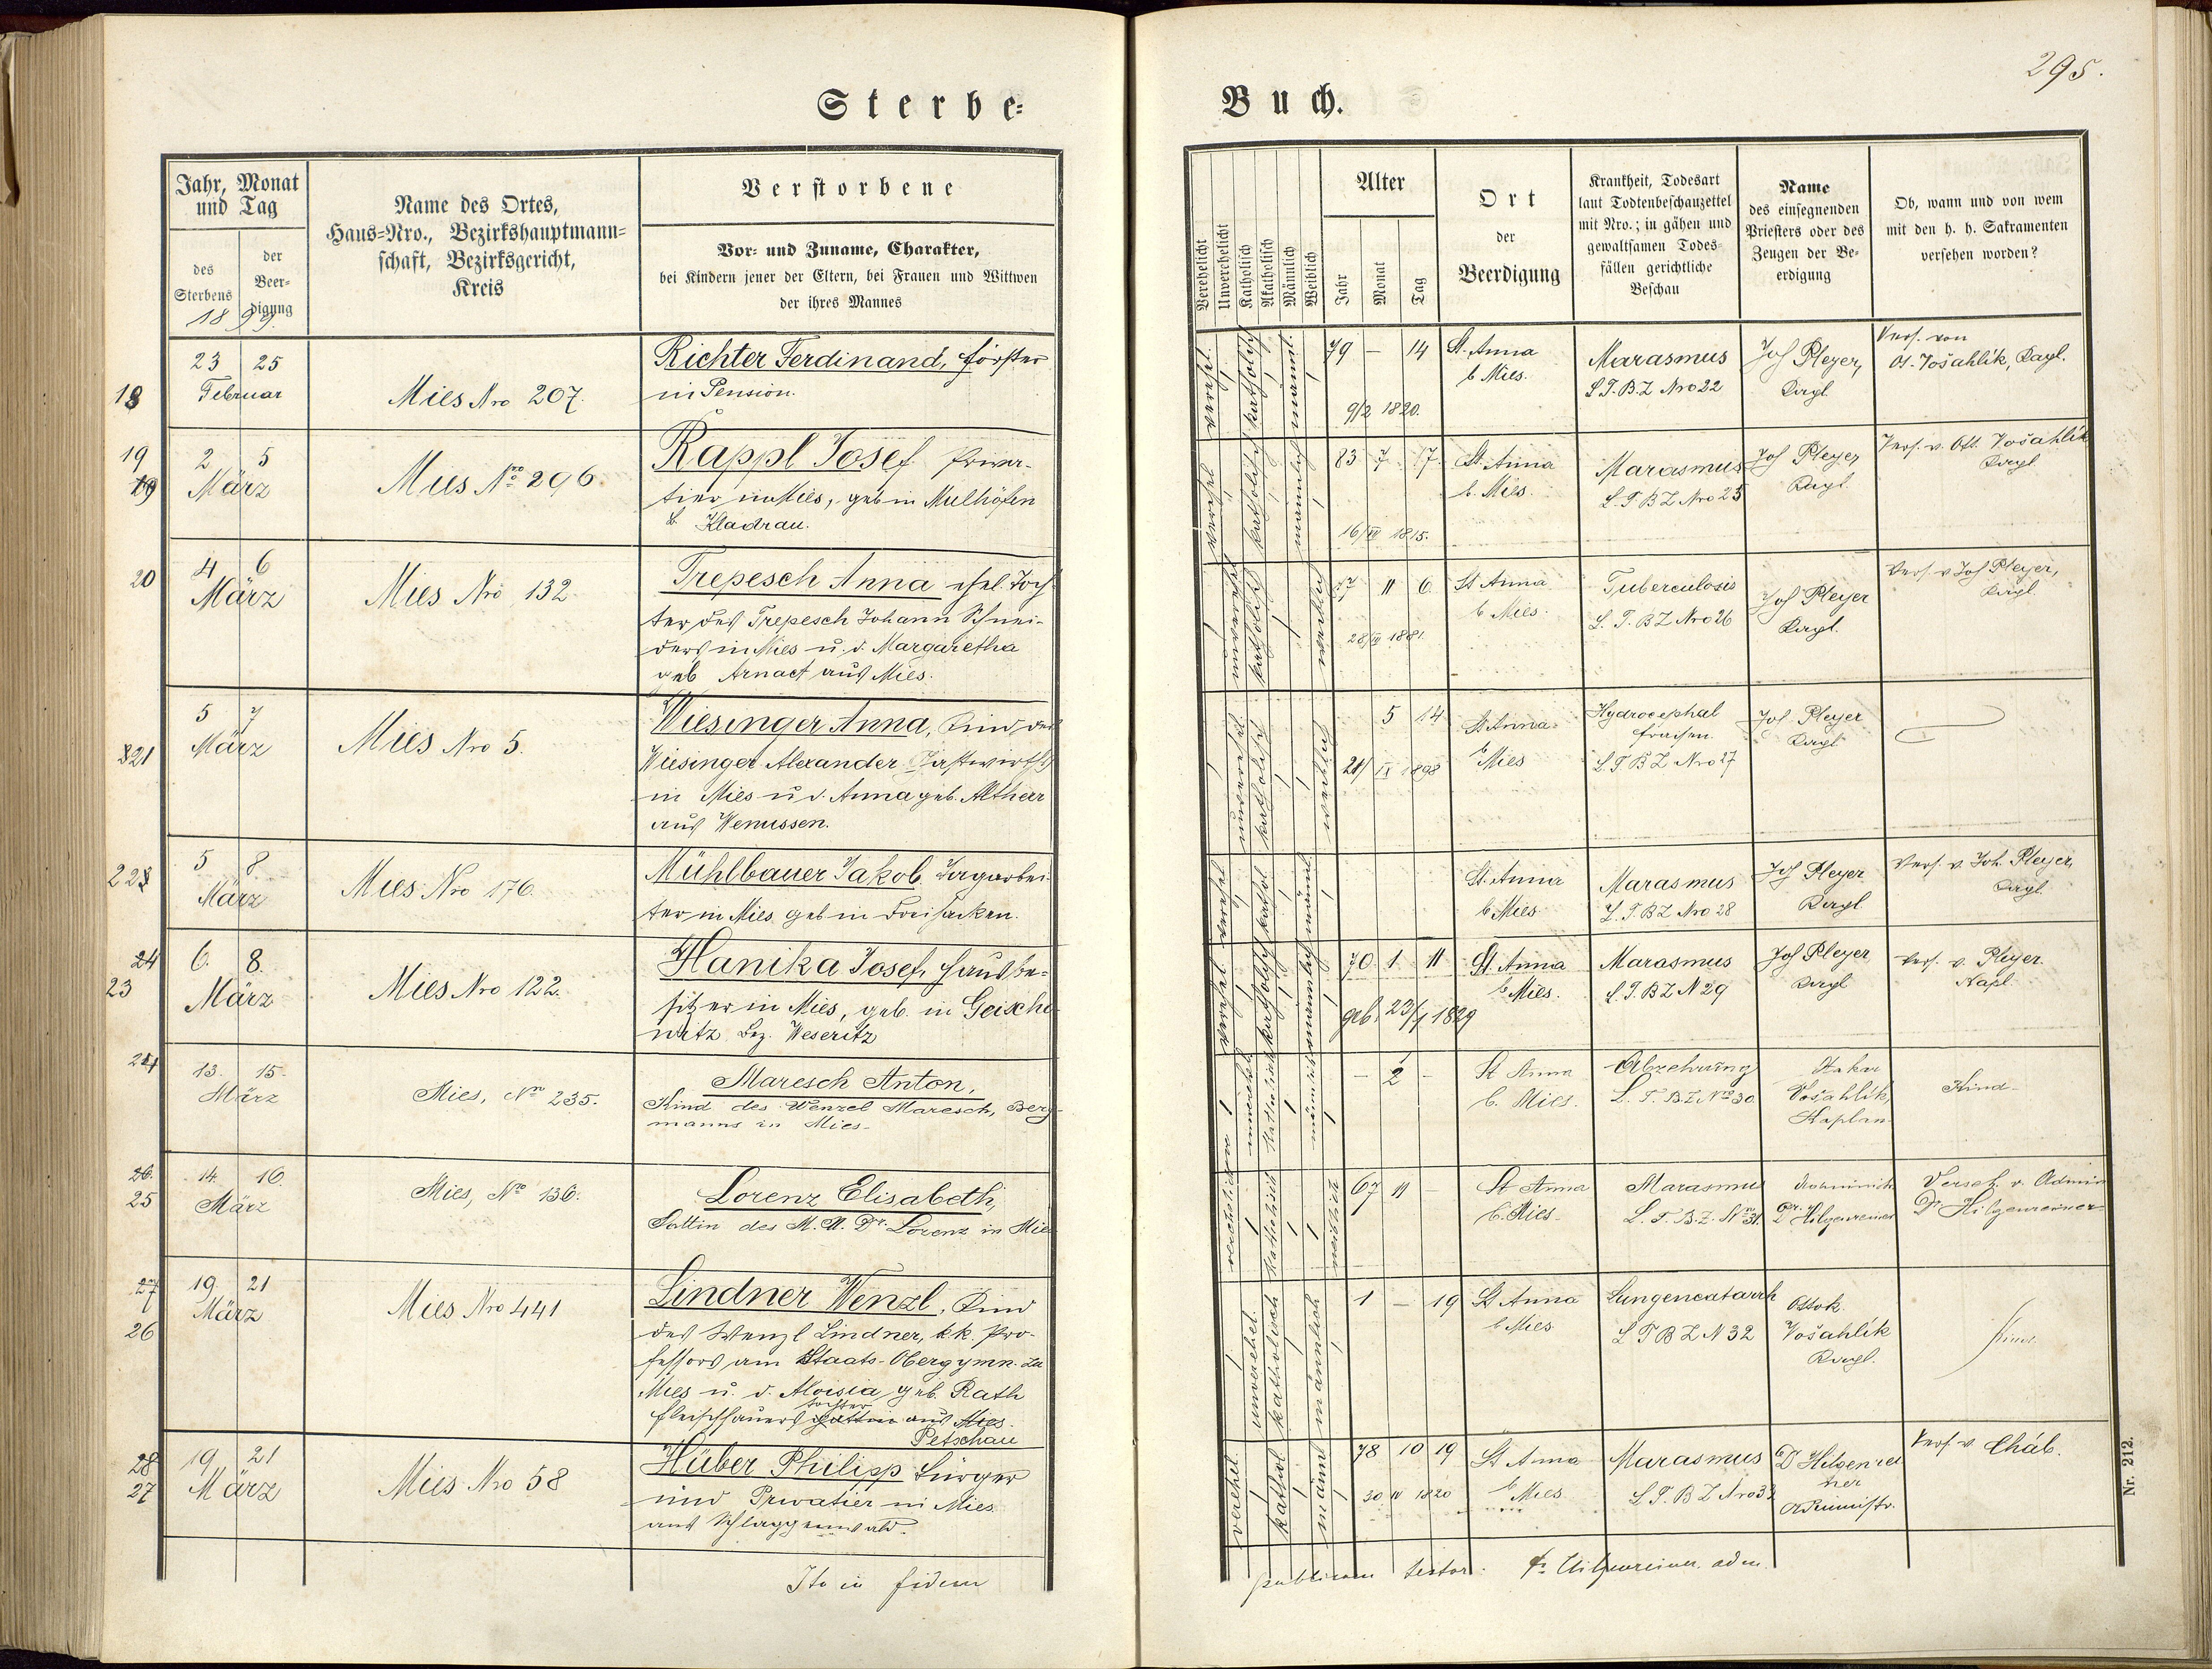 295.
Sterbe=
Buch.
Jahr, Monat
und Tag
des
Sterbens
der
Beer-
digung
1899
Name des Ortes,
Haus=Nro., Bezirkshauptmann=
schaft, Bezirksgericht,
Kreis
Verstorbene
Vor- und Zuname, Charakter,
bei Kindern jener der Eltern, bei Frauen und Wittwen
der ihres Mannes
Verehelicht
Unverehelicht
Katholisch
Akatholisch
Männlich
Weiblich
Alter
Jahr
Monat
Tag
Ort
der
Beerdigung
Krankheit, Todesart
laut Todtenbeschauzettel
mit Nro.; in gähen und
gewaltsamen Todes-
fällen gerichtliche
Beschau
Name
des einsegnenden
Priesters oder des
Zeugen der Be-
erdigung
Ob, wann und von wem
mit den h. h. Sakramenten
versehen worden?
18
23 25
Februar
Mies Nro 207.
Richter Ferdinand, Förster
in Pension.
katholisch
männl.
79 — 14
9/2 1820.
St. Anna
b Mies.
Marasmus
L T. B. Z Nro 22
Jos Pleyer,
Kapl.
Vers. von
Ot. Vošahlik, Kapl.
19
19
2 5
März
Mies Nro 296.
Rappl Josef Priva-
tier in Mies, geb in Mulhöfen
b. Kladrau.
katholisch
männlich
83 7 17.
16/VII 1815.
St. Anna
b. Mies.
Marasmus
L. T. B Z Nro 25
Jos Pleyer
Kapl.
Vers. v. Ott. Vošahlik
Kapl
20
4 6
März
Mies Nro 132.
Trepesch Anna ehel. Toch-
ter des Trepesch Johann Schnei-
ders in Mies u. d. Margaretha
geb Arnact aus Mies.
unvereh.
katholisch
weiblich
17 11 6
1881.
St Anna
b Mies.
Tuberculosis
L. T. B Z Nro 26
Jos Pleyer
Kapl.
Vers. v Jos Pleyer,
Kapl
21
5 7
März
Mies Nro 5.
Wiesinger Anna, Kind des
Wiesinger Alexander Gastwirths
in Mies u d. Anna geb. Altherr
aus Wenussen.
unverehel
katholisch
weiblich
5 14
21/IX 1898
St Anna
b Mies
Hydrocephal
fraisen.
L. T B Z Nro 27
Jos Pleyer
Kapl
22
5 8.
März
Mies Nro 176.
Mühlbauer Jakob Tagarbei-
ter in Mies geb in
verehel
kathol
männl.
St. Anna
b Mies.
Marasmus
L. T. B Z Nro 28
Jos Pleyer
Kapl
Vers. v. Joh. Pleyer,
Kapl
24
23
6. 8.
März
Mies Nro 122.
Hanika Josef, Hausbe-
sitzer in Mies, geb. in Gescho-
witz Bez. Weseritz
verehel
katholisch
männlich
70 1 11
geb. 23/1 1829
St Anna
b Mies.
Marasmus
L. T. B Z N 29
Jos Pleyer
Kapl
Vers. v. Pleyer
Kapl.
24
13. 15.
März
Mies, Nro 235.
Maresch Anton,
Kind des Wenzel Maresch, Berg-
manns in Mies.
unverehel
katholisch
männlich
— 2 —
St Anna
b. Mies.
Abzehrung
L. T. B. Z. Nro 30
Otakar
Vošahlik,
Kaplan
Kind
26.
25
14. 16.
März
Mies, Nro 136.
Lorenz Elisabeth,
Gattin des M. U. Dr. Lorenz in Mies
verehelicht
katholisch
weiblich
67 11 —
St Anna
b. Mies
Marasmus
L. T. B. Z. Nro 31.
Dr. Hilgenreiner
Verseh. v. Admin
Dr Hilgenreiner
27
26
19. 21
März
Mies Nro 441
Lindner Wenzl, Kind
des Wenzl Lindner, k.k. Pro-
fessors am Staats-Obergymn. zu
Mies u. d. Aloisia geb. Rath
tochter
Fleischhauers Gattin aus Mies.
Petschau
unverehel.
katholisch
männlich
1 — 19
St Anna
b Mies
Lungencatarrh
L T B Z N 32
Ottok.
Vošahlik
Kapl.
Kind
28
27
19. 21
März
Mies Nro 58
Hüber Philipp Bürger
und Privatier in Mies
aus Schlaggenwald.
verehel.
kathol
männl
78 10 19
30 IV 1820
St Anna
b Mies
Marasmus
L. T. B Z Nro 33
Dr Hilgenrei
ner
Administr.
Vers. v. Cháb.
Ita in fidem
publicam testor. Hilgenreiner. adm.
Nr. 212.